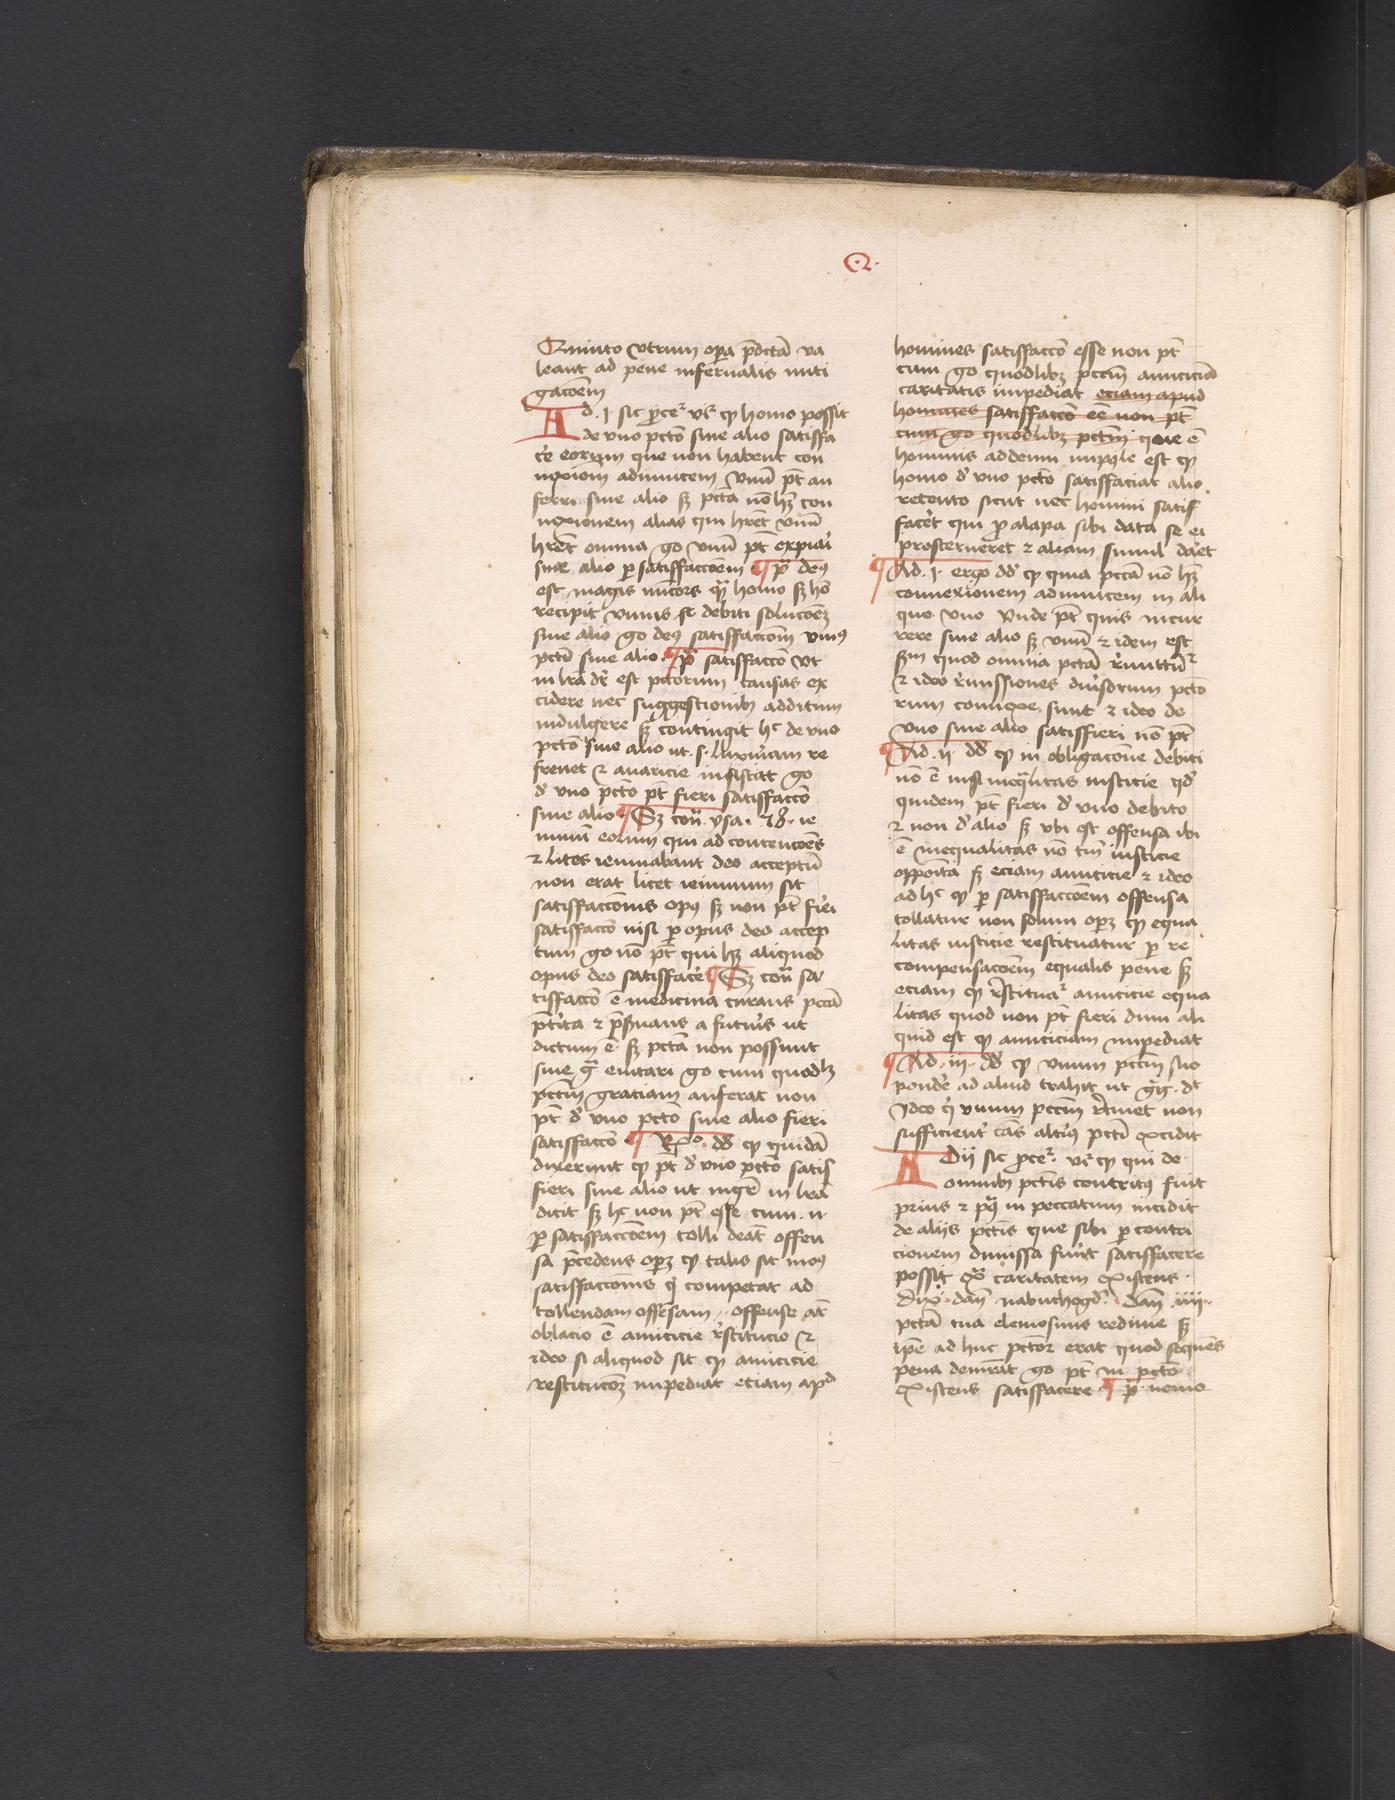 Q.
Quinto vtrum oꝑa p̄dcta̅ va
leant ad pene infernalis miti
gaco̅em
Ad .1. sic p̲ceꝰ vr̄ ꝙ homo possit
de vno pctō sine alio satisfa
cer̄e eorum que non habent con
nexiom̄ adinuicem vnu̅ pt̄ au
ferri sine alio sꝫ pcta̅ no̅ hn̄t con
nexionem alias qui hr̄et vnu̅
hr̄et omnia go vnu̅ pt̄ expiari
sine alio per satisfacco̅em ¶ p̄ deꝰ
est magis mi̅cors qua̅ homo sꝫ hō
recipit vnius sc debiti soluco̅eꝫ
sine alio go deꝰ satisfacco̅m vniꝰ
pcti̅ sine alio ¶ p̄ satisfacco̅ vt
in lra̅ dr̄ est pctorum causas ex
cidere nec suggestionibꝫ additum
indulgere sꝫ contingit hᶜ de vno
pctō sine alio ut .s. luxuriam re
frenet ⁊ auaricie insistat go
dꝰ vno pcto pt̄ fieri satisfacco̅
sine alio ¶ Sꝫ con̄ ysa. 58. ie
iuniu̅ eorum qui ad contenco̅es
⁊ lites ieiunabant deo acceptu̅
non erat licet ieiunium sit
satisfacco̅nis opꝰ sꝫ non pt̄ fieri
satisfacco̅ nisi ꝑ opus deo accep
tum go no̅ pt̄ qui hꝫ aliquod
opus deo satisfacer̄e ¶ Sꝫ con̄ sa
tisfacco̅ e̅ medicina curans pcca̅
p̄tita ⁊ p̄seruans a futuris ut
dictum e̅ sꝫ pcta̅ non possunt
sine gr̄a euitari go cum quodlꝫ
pctm̄ gratiam auferat non
pt̄ dꝰ vno pctō sine alio fieri
satisfacco̅ ¶ Rᵒ. dd̄ ꝙ quida̅
dixerunt ꝙ pt̄ dꝰ vno pctō satis
fieri sine alio ut mgr̄ in lra̅
dicit sꝫ hᶜ non pt̄ esse cum .n.
ꝑ satisfacco̅em tolli deat̄ offen
sa p̄cedens oꝫ ꝙ talis sit modꝰ
satisfacco̅nis qͥ competat ad
tollendam offensam offense at̄
oblacio e̅ amicicie rꝰstitucio ⁊
ideo si aliquod sit ꝙ amicicie
restituco̅ꝫ impediat etiam apd
homines satisfacco̅ esse non pt̄
cum go quodlibꝫ pcctm̄ amicicia̅
caritatis impediat etiam apud
homines satisfacco̅ ee̅ non pt̄
cum go quodlibꝫ pctm̄ que e̅
hominis ad deum impo̅le est ꝙ
homo dꝰ vno pcto satisfaciat alio
retento sicut nec homini satis
facet̄ qui ꝓ alapa sibi data se ei
prosterneret ⁊ aliam simul daret
¶ Ad .1. ergo dd̄ ꝙ quia pcca̅ no̅ hn̄t
connexionem adinuicem in ali
quo vno vnde pt̄ quis incur
rere sine alio sꝫ vnu̅ ⁊ idem est
scdm̄ quod omnia pcta̅ remittu̅tꝰ
⁊ ideo remissiones diuersorum pcto
rum connexe sunt ⁊ ideo de
vno sine alio satisfieri no̅ pt̄
¶ Ad .ii. dd̄ ꝙ in obligaco̅ne debiti
no̅ e̅ nisi inequalitas iusticie qd̄
quidem pt̄ fieri dꝰ vno debito
⁊ non dꝰ alio sꝫ vbi est offensa ibi
e̅ inequalitas no̅ tm̄ iusticie
opposita sꝫ eciam amicicie ⁊ ideo
ad hᶜ ꝙ ꝑ satisfacco̅em offensa
tollatur non solum oꝫ ꝙ equa
litas iusticie restituatur ꝑ re
compensaco̅em equalis pene sꝫ
etiam ꝙ rꝰstituatꝰ amicicie equa
litas quod non pt̄ fieri dum ali
quid est ꝙ amiciciam impediat
¶ Ad .iii. dd̄ ꝙ vnum pcctm̄ suo
ponder̄e ad aliud trahit ut gg. dt
Ideo qͥ vnum pcctm̄ rꝰtinet non
sufficient̄ ca̅s altiꝰ pcti̅ excidit
Ad ii sic p̲ceꝰ. vr̄ ꝙ qui de
omnibꝫ pctis contritꝰ fuit
prius ⁊ pꝰ in peccatum incidit
de alijs pctis que sibi ꝑ contri
cionem dimissa fueru̅t satisfacere
possit ext̄ caritatem existens.
Dixᵗ dan̄ nabuchogdꝰ. Dan̄ .iiii.
pcta̅ tua elemosinis redime sꝫ
ipe̅ ad huc pctor erat quod sequens
pena demr̄at go pt̄ in pctō
existens satisfacere ¶ p̄ nemo